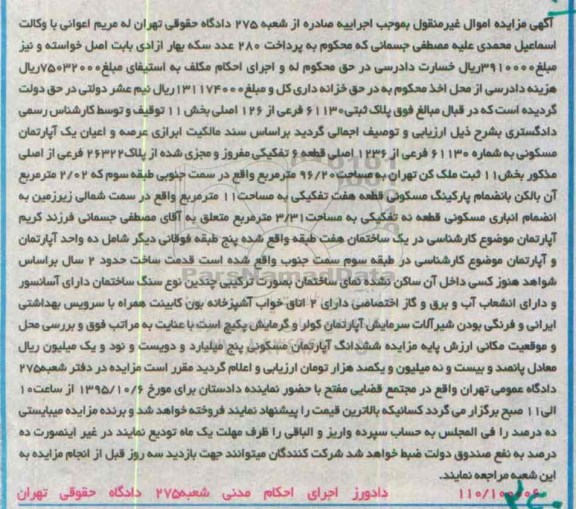 آگهی مزایده اموال غیرمنقول بموجب اجراییه صادره از شعبه ۲۷۵ دادگاه حقوقی تهران له مریم اعوانی با وکالت
اسماعیل محمدی علیه مصطفی جسمانی که محکوم به پرداخت ۲۸۰ عدد سکه بهار ازادی بابت اصل خواسته و نیز
مبلغ۳۹۱۰۰۰۰ریال خسارت دادرسی در حق محکوم له و اجرای احکام مکلف به استیفای مبلغ۷۵۰۳۲۰۰۰ریال
هزینه دادرسی از محل اخذ محکوم به در حق خزانه داری کل و مبلغ۱۳۱۱۷۴۰۰۰ریال نیم عشر دولتی در حق دولت
گردیده است که در قبال مبالغ فوق پلاک ثبتی۶۱۱۳۰ فرعی از ۱۲۶ اصلی بخش ۱۱ توقیف و توسط کارشناس رسمی
دادگستری بشرح ذیل ارزیابی و توصیف اجمالی گردید براساس سند مالکیت ابرازی عرصه و اعیان یک آپارتمان
مسکونی به شماره ۶۱۱۳۰ فرعی از ۱۲۳۶ اصلی قطعه ۶ تفکیکی مفروز و مجزی شده از پلاک۲۶۳۲۲ فرعی از اصلی
مذکور بخش۱۱ ثبت ملک کن تهران به مساحت۹۶/۲۰ مترمربع واقع در سمت جنوبی طبقه سوم که ۲/۰۲ مترمربع
آن بالکن بانضمام پارکینگ مسکونی قطعه هفت تفکیکی به مساحت۱۱ مترمربع واقع در سمت شمالی زیرزمین به
انضمام انباری مسکونی قطعه نه تفکیکی به مساحت۳/۳۱ مترمربع متعلق به آقای مصطفی جسمانی فرزند کریم
آپارتمان موضوع کارشناسی در یک ساختمان هفت طبقه واقع شده پنج طبقه فوقانی دیگر شامل ده واحد آپارتمان
و آپارتمان موضوع کارشناسی در طبقه سوم سمت جنوب واقع شده است قدمت ساخت حدود ۲ سال براساس
شواهد هنوز کسی داخل آن ساکن نشده نمای ساختمان بصورت ترکیبی چندین نوع سنگ ساختمان دارای آسانسور
و دارای انشعاب آب و برق و گاز اختصاصی دارای ۲ اتاق خواب آشپزخانه بون کابینت همراه با سرویس بهداشتی
ایرانی و فرنگی بودن شیرآلات سرمایش آپارتمان کولر و گرمایش پکیج است با عنایت به مراتب فوق و بررسی محل
و موقعیت مکانی ارزش پایه مزایده ششدانگ آپارتمان مسکونی پنج میلیارد و دویست و نود و یک میلیون ریال
معادل پانصد و بیست و نه میلیون و یکصد هزار تومان ارزیابی و اعلام گردید مقرر است مزایده در دفتر شعبه۲۷۵
دادگاه عمومی تهران واقع در مجتمع قضایی مفتح با حضور نماینده دادستان برای مورخ ۱۳۹۵/۱۰/۶ از ساعت۱۰
الی۱۱ صبح برگزار می گردد کسانیکه بالاترین قیمت را پیشنهاد نمایند فروخته خواهد شد و برنده مزایده میبایستی
ده درصد را فی المجلس به حساب سپرده واریز و الباقی را ظرف مهلت یک ماه تودیع نمایند در غیر اینصورت ده
درصد به نفع صندوق دولت ضبط خواهد شد شرکت کنندگان میتوانند جهت بازدید سه روز قبل از انجام مزایده به
این شعبه مراجعه نمایند.
دادورز اجرای احکام مدنی شعبه۲۷۵ دادگاه حقوقی تهران
ParsNamadData